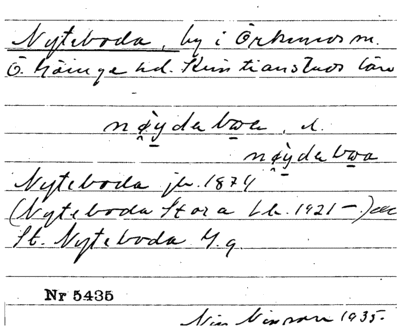 Nyteboda, by i Örkeneds sn.
Ö. Göinge hd. Kristianstads län
nø̀ydabωa, d.
nø̀ydabωa
Nyteboda jb. 1874
(Nyteboda Stora Lb. 1921 –)
St. Nyteboda
Nr 5435
1935.